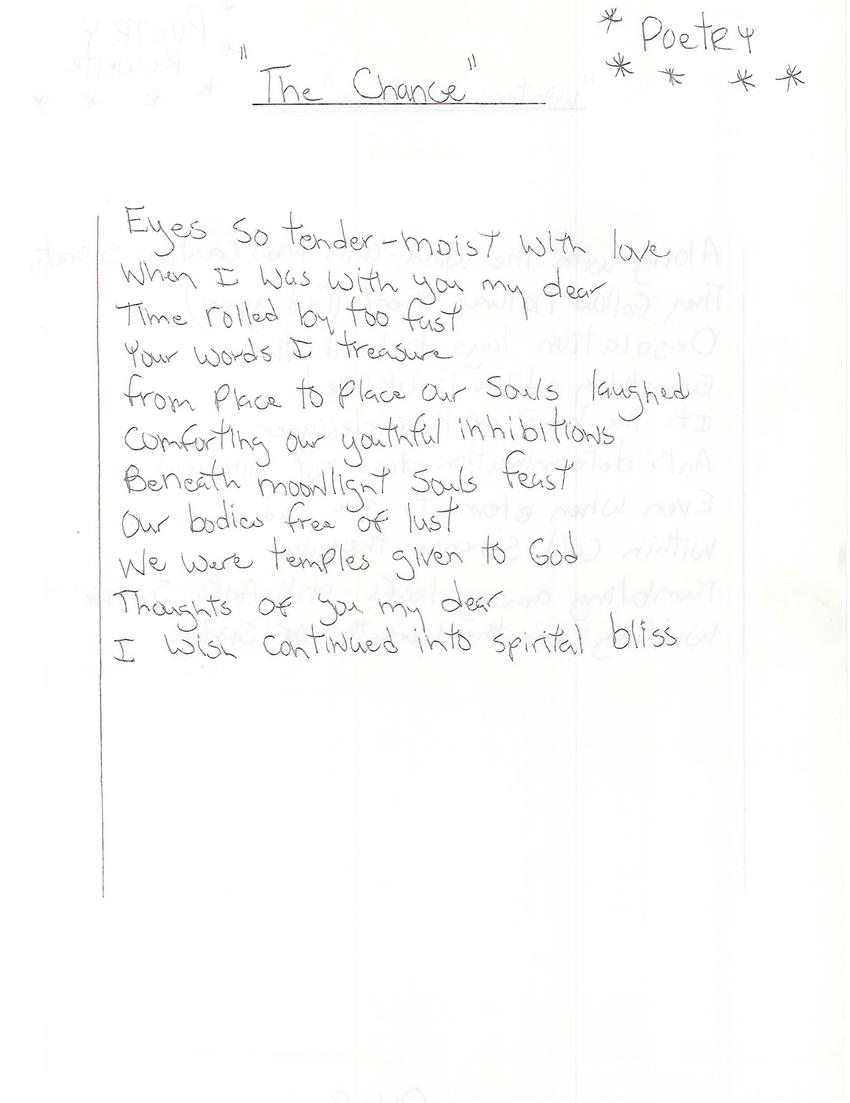 * Poetry
* * * *
"The Chance"
Eyes so tender-moist with love
When I was with you my dear
Time rolled by too fast
Your words I treasure
from place to place our souls laughed
Comforting our youthful inhibitions
Beneath moonlight souls feast
Our bodies free of lust
We were temples given to God
Thoughts of you my dear
I wish continued into spirital bliss